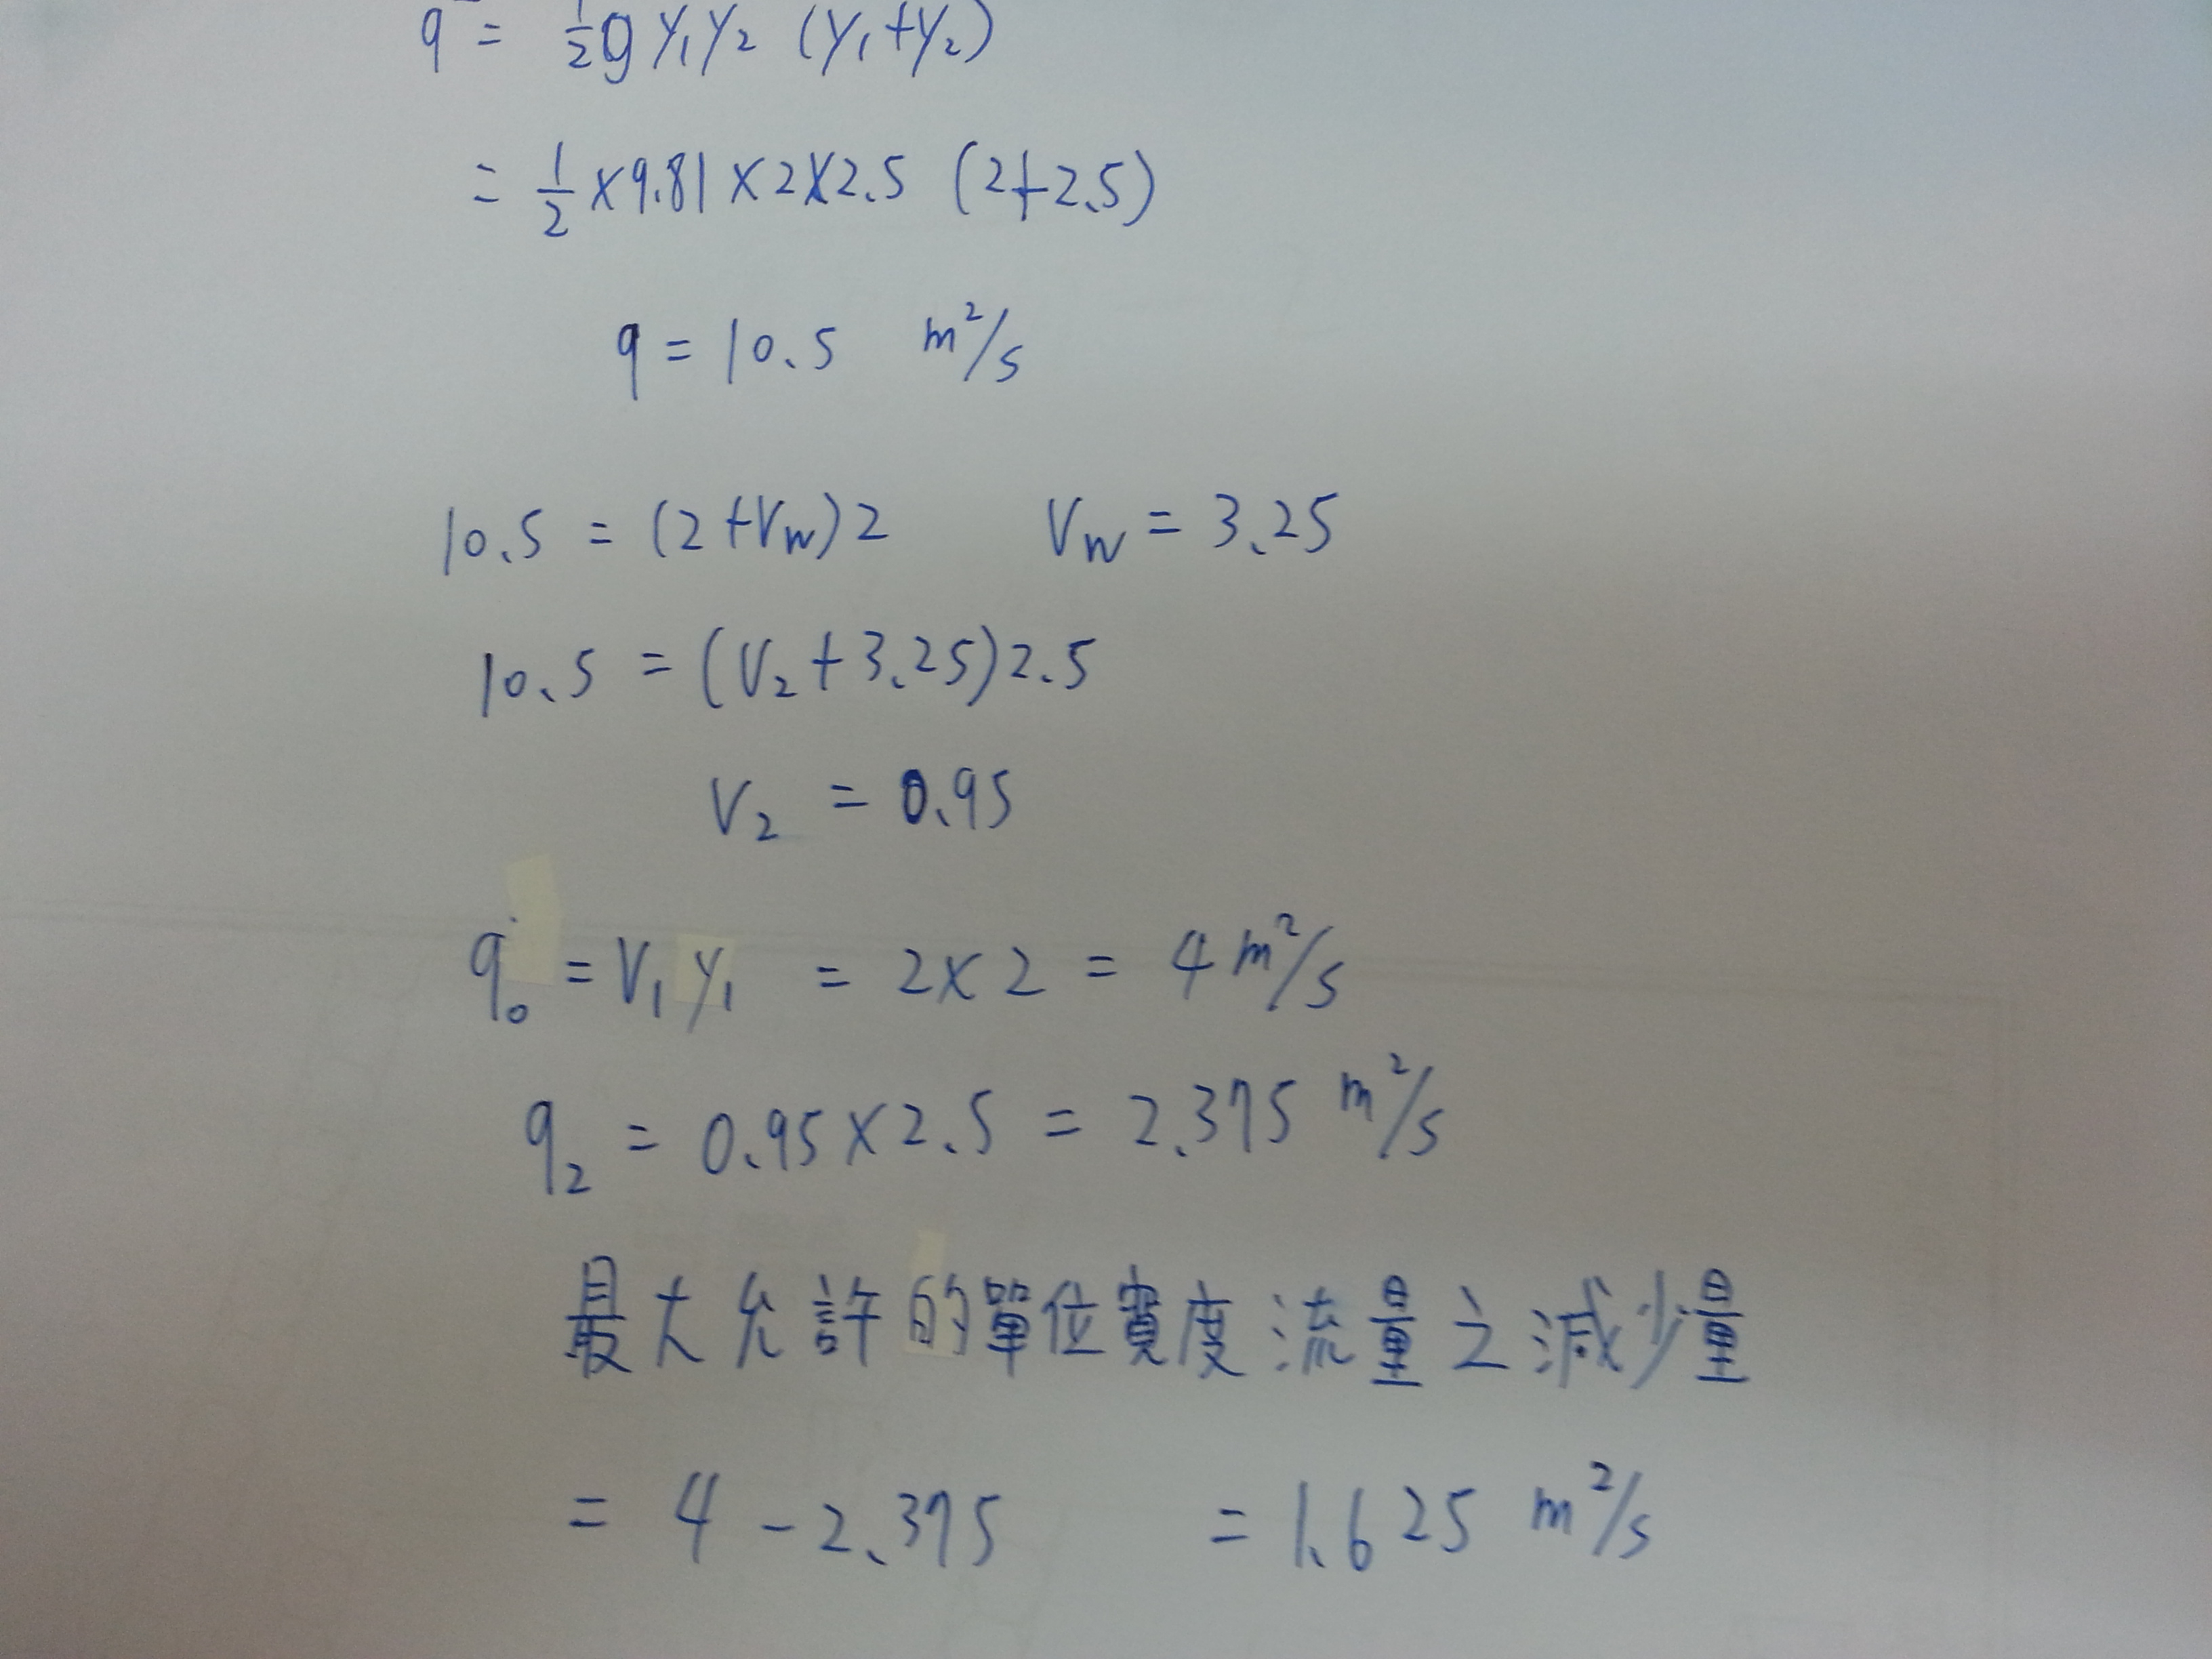 q = ½ g y₁ y₂ (y₁+y₂)
= ½ ×9.81 ×2×2.5 (2+2.5)
q = 10.5 m²/s
10.5 = (2+Vw)2 Vw = 3.25
10.5 = (V₂+3.25)2.5
V₂ = 0.95
q₀ = V₁y₁ = 2×2 = 4 m²/s
q₂ = 0.95×2.5 = 2.375 m²/s
最大允許的單位寬度流量之減少量
= 4 - 2.375 = 1.625 m²/s